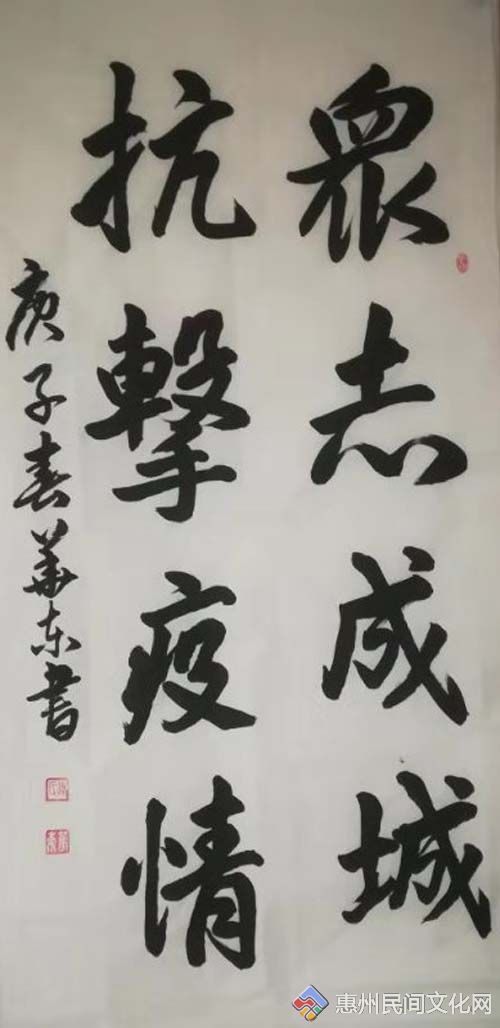 眾志成城
抗擊疫情
庚子春華東書
惠州民间文化网